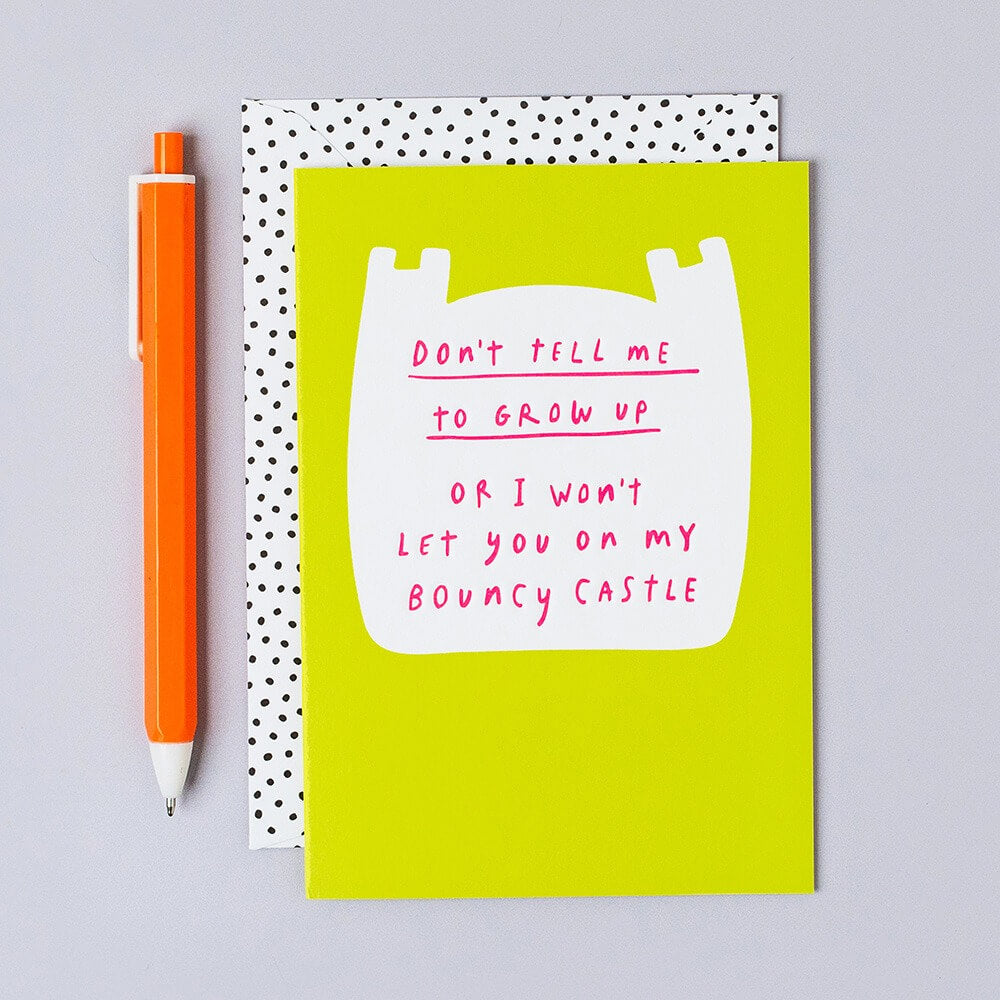 DON't tELL ME
tO GROW UP
OR I WON't
LEt yOU ON My
BOUNCy CAStLE